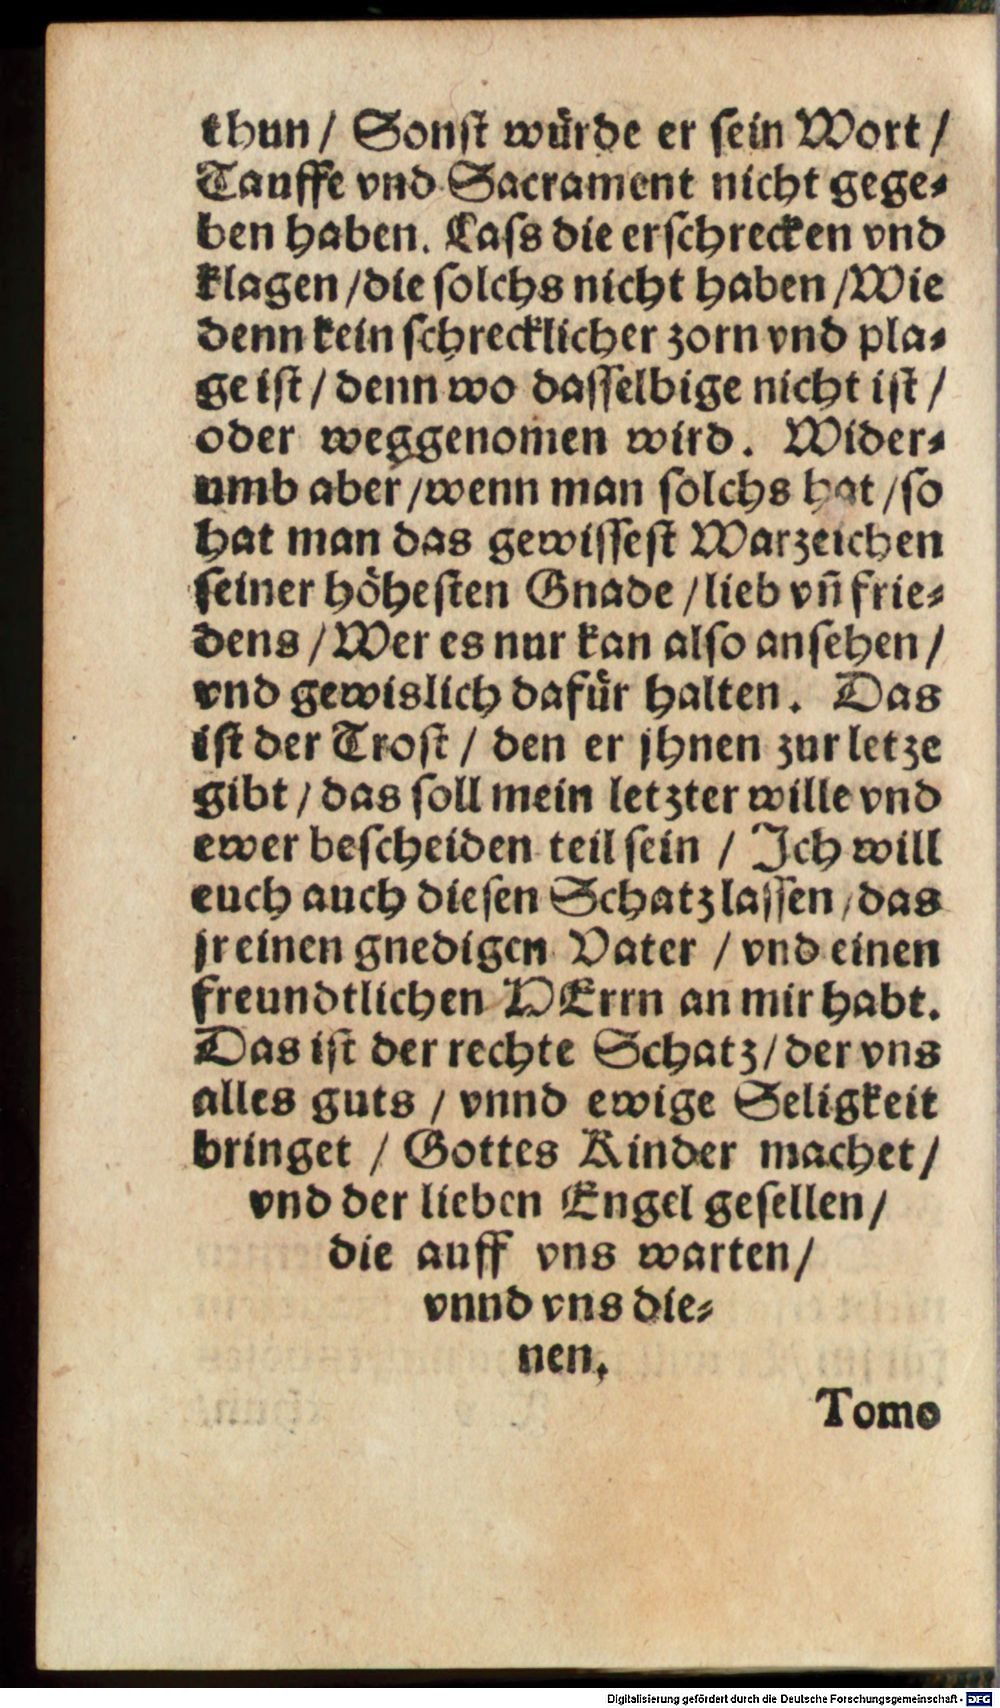 thun / Sonſt wuͤrde er ſein Wort /
Tauffe vnd Sacrament nicht gege⸗
ben haben. Laſs die erſchrecken vnd
klagen / die ſolchs nicht haben / Wie
denn kein ſchrecklicher zorn vnd pla⸗
ge iſt / denn wo daſſelbige nicht iſt /
oder weggenomen wird. Wider⸗
umb aber / wenn man ſolchs hat / ſo
hat man das gewiſſeſt Warzeichen
ſeiner hoͤheſten Gnade / lieb vñ frie⸗
dens / Wer es nur kan alſo anſehen /
vnd gewislich dafuͤr halten. Das
iſt der Troſt / den er jhnen zur letze
gibt / das ſoll mein letzter wille vnd
ewer beſcheiden teil ſein / Ich will
euch auch dieſen Schatz laſſen / das
jr einen gnedigen Vater / vnd einen
freundtlichen HErrn an mir habt.
Das iſt der rechte Schatz / der vns
alles guts / vnnd ewige Seligkeit
bringet / Gottes Kinder machet /
vnd der lieben Engel geſellen /
die auff vns warten /
vnnd vns die⸗
nen.
Tomo
Digitalisierung gefördert durch die Deutsche Forschungsgemeinschaft - DFG